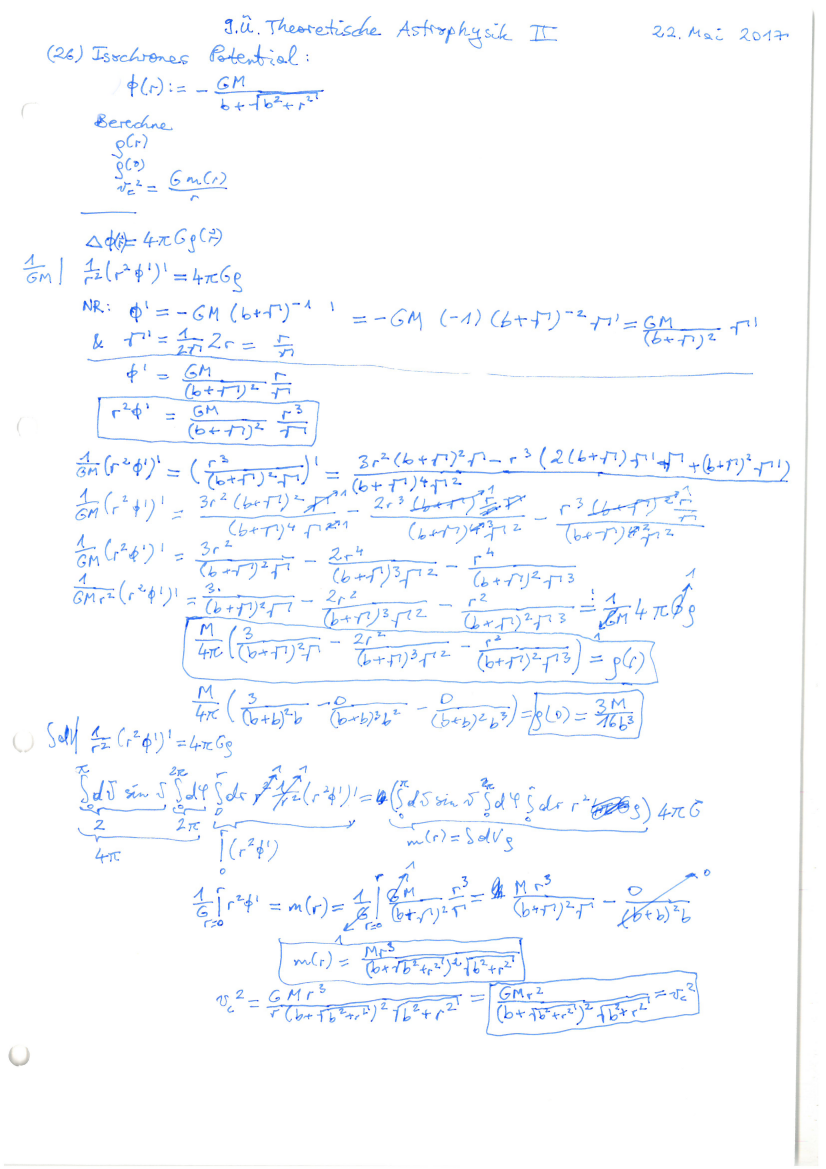 9.Ü. Theoretische Astrophysik II 22. Mai 2017
(26) Isochrones Potential:
ϕ(r) := - GM / (b+√(b²+r²))
Berechne
ρ(r)
ρ(0)
v_c² = G m(r) / r
Δϕ(r⃗) = 4πGρ(r⃗)
1/GM | 1/r² (r²ϕ')' = 4πGρ
NR.: ϕ' = -GM (b+√)⁻¹ ' = -GM (-1) (b+√)⁻² √' = GM/(b+√)² √'
& √' = 1/(2√) 2r = r/√
ϕ' = GM/(b+√)² r/√
r²ϕ' = GM/(b+√)² r³/√
1/GM (r²ϕ')' = (r³/((b+√)²√))' = (3r²(b+√)²√ - r³(2(b+√)√'√ + (b+√)²√'))/((b+√)⁴√²)
1/GM (r²ϕ')' = 3r²(b+√)²√/((b+√)⁴√²) - 2r³(b+√) r/√ √/((b+√)⁴√²) - r³(b+√)² r/√/((b+√)⁴√²)
1/GM (r²ϕ')' = 3r²/((b+√)²√) - 2r⁴/((b+√)³√²) - r⁴/((b+√)²√³)
1/GMr² (r²ϕ')' = 3/((b+√)²√) - 2r²/((b+√)³√²) - r²/((b+√)²√³) =! 1/GM 4πGρ
M/4π (3/((b+√)²√) - 2r²/((b+√)³√²) - r²/((b+√)²√³)) = ρ(r)
M/4π (3/((b+b)²b) - 0/((b+b)³b²) - 0/((b+b)²b³)) = ρ(0) = 3M/16b³
∫dV | 1/r² (r²ϕ')' = 4πGρ
∫₀^π dϑ sin ϑ ∫₀^2π dφ ∫₀^r dr r² 1/r² (r²ϕ')' = (∫₀^π dϑ sin ϑ ∫₀^2π dφ ∫₀^r dr r² ρ) 4πG
2 2π m(r) = ∫dVρ
4π |₀^r (r²ϕ')
1/G |_{r=0}^r r²ϕ' = m(r) = 1/G |_{r=0}^r GM/(b+√)² r³/√ = Mr³/((b+√)²√) - 0/((b+b)²b)
m(r) = Mr³/((b+√(b²+r²))²√(b²+r²))
v_c² = GMr³/(r(b+√(b²+r²))²√(b²+r²)) = GMr²/((b+√(b²+r²))²√(b²+r²)) = v_c²